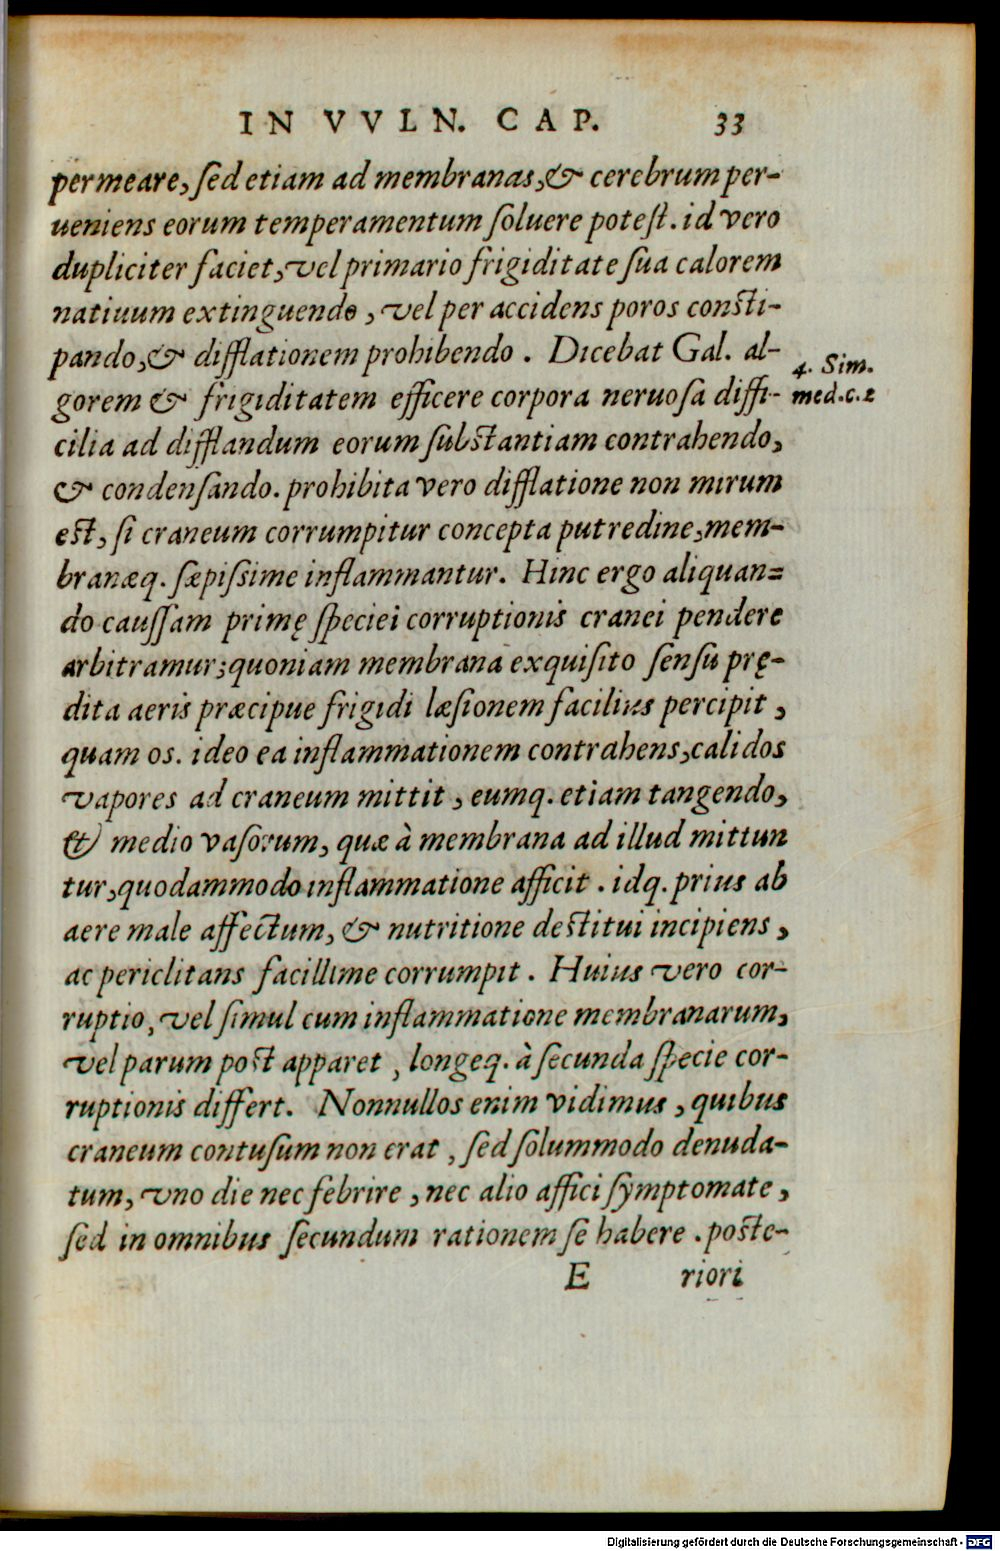 IN VVLN. CAP. 33
permeare, sed etiam ad membranas, & cerebrum per-
ueniens eorum temperamentum soluere potest. id vero
dupliciter faciet, vel primario frigiditate sua calorem
natiuum extinguendo, vel per accidens poros consti-
pando, & difflationem prohibendo. Dicebat Gal. al-
4. Sim.
gorem & frigiditatem efficere corpora neruosa diffi-
med.c.2
cilia ad difflandum eorum substantiam contrahendo,
& condensando. prohibita vero difflatione non mirum
est, si craneum corrumpitur concepta putredine, mem-
branæq. sæpissime inflammantur. Hinc ergo aliquan=
do caussam primę speciei corruptionis cranei pendere
arbitramur; quoniam membrana exquisito sensu prę-
dita aeris præcipue frigidi læsionem facilius percipit,
quam os. ideo ea inflammationem contrahens, calidos
vapores ad craneum mittit, eumq. etiam tangendo,
& medio vasorum, quæ à membrana ad illud mittun
tur, quodammodo inflammatione afficit. idq. prius ab
aere male affectum, & nutritione destitui incipiens,
ac periclitans facillime corrumpit. Huius vero cor-
ruptio, vel simul cum inflammatione membranarum,
vel parum post apparet, longeq. à secunda specie cor-
ruptionis differt. Nonnullos enim vidimus, quibus
craneum contusum non erat, sed solummodo denuda-
tum, vno die nec febrire, nec alio affici symptomate,
sed in omnibus secundum rationem se habere. poste-
E riori
Digitalisierung gefördert durch die Deutsche Forschungsgemeinschaft - DFG